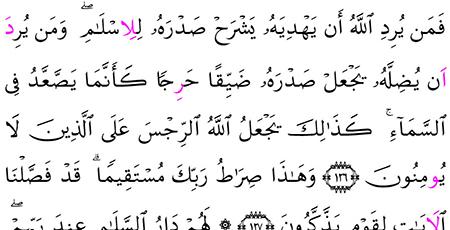 فَمَن يُرِدِ اللَّهُ أَن يَهْدِيَهُۥ يَشْرَحْ صَدْرَهُۥ لِلِاسْلَٰمِۖ وَمَن يُرِدَ
اَن يُضِلَّهُۥ يَجْعَلْ صَدْرَهُۥ ضَيِّقًا حَرِجًا كَأَنَّمَا يَصَّعَّدُ فِى
السَّمَآءِۚ كَذَٰلِكَ يَجْعَلُ اللَّهُ الرِّجْسَ عَلَى الَّذِينَ لَا
يُومِنُونَ ﴿١٢٦﴾ وَهَٰذَا صِرَٰطُ رَبِّكَ مُسْتَقِيمًاۗ قَدْ فَصَّلْنَا
اَلَايَٰتِ لِقَوْمٍ يَذَّكَّرُونَ ﴿١٢٧﴾ ۞ لَهُمْ دَارُ السَّلَٰمِ عِندَ رَبِّهِمْۖ